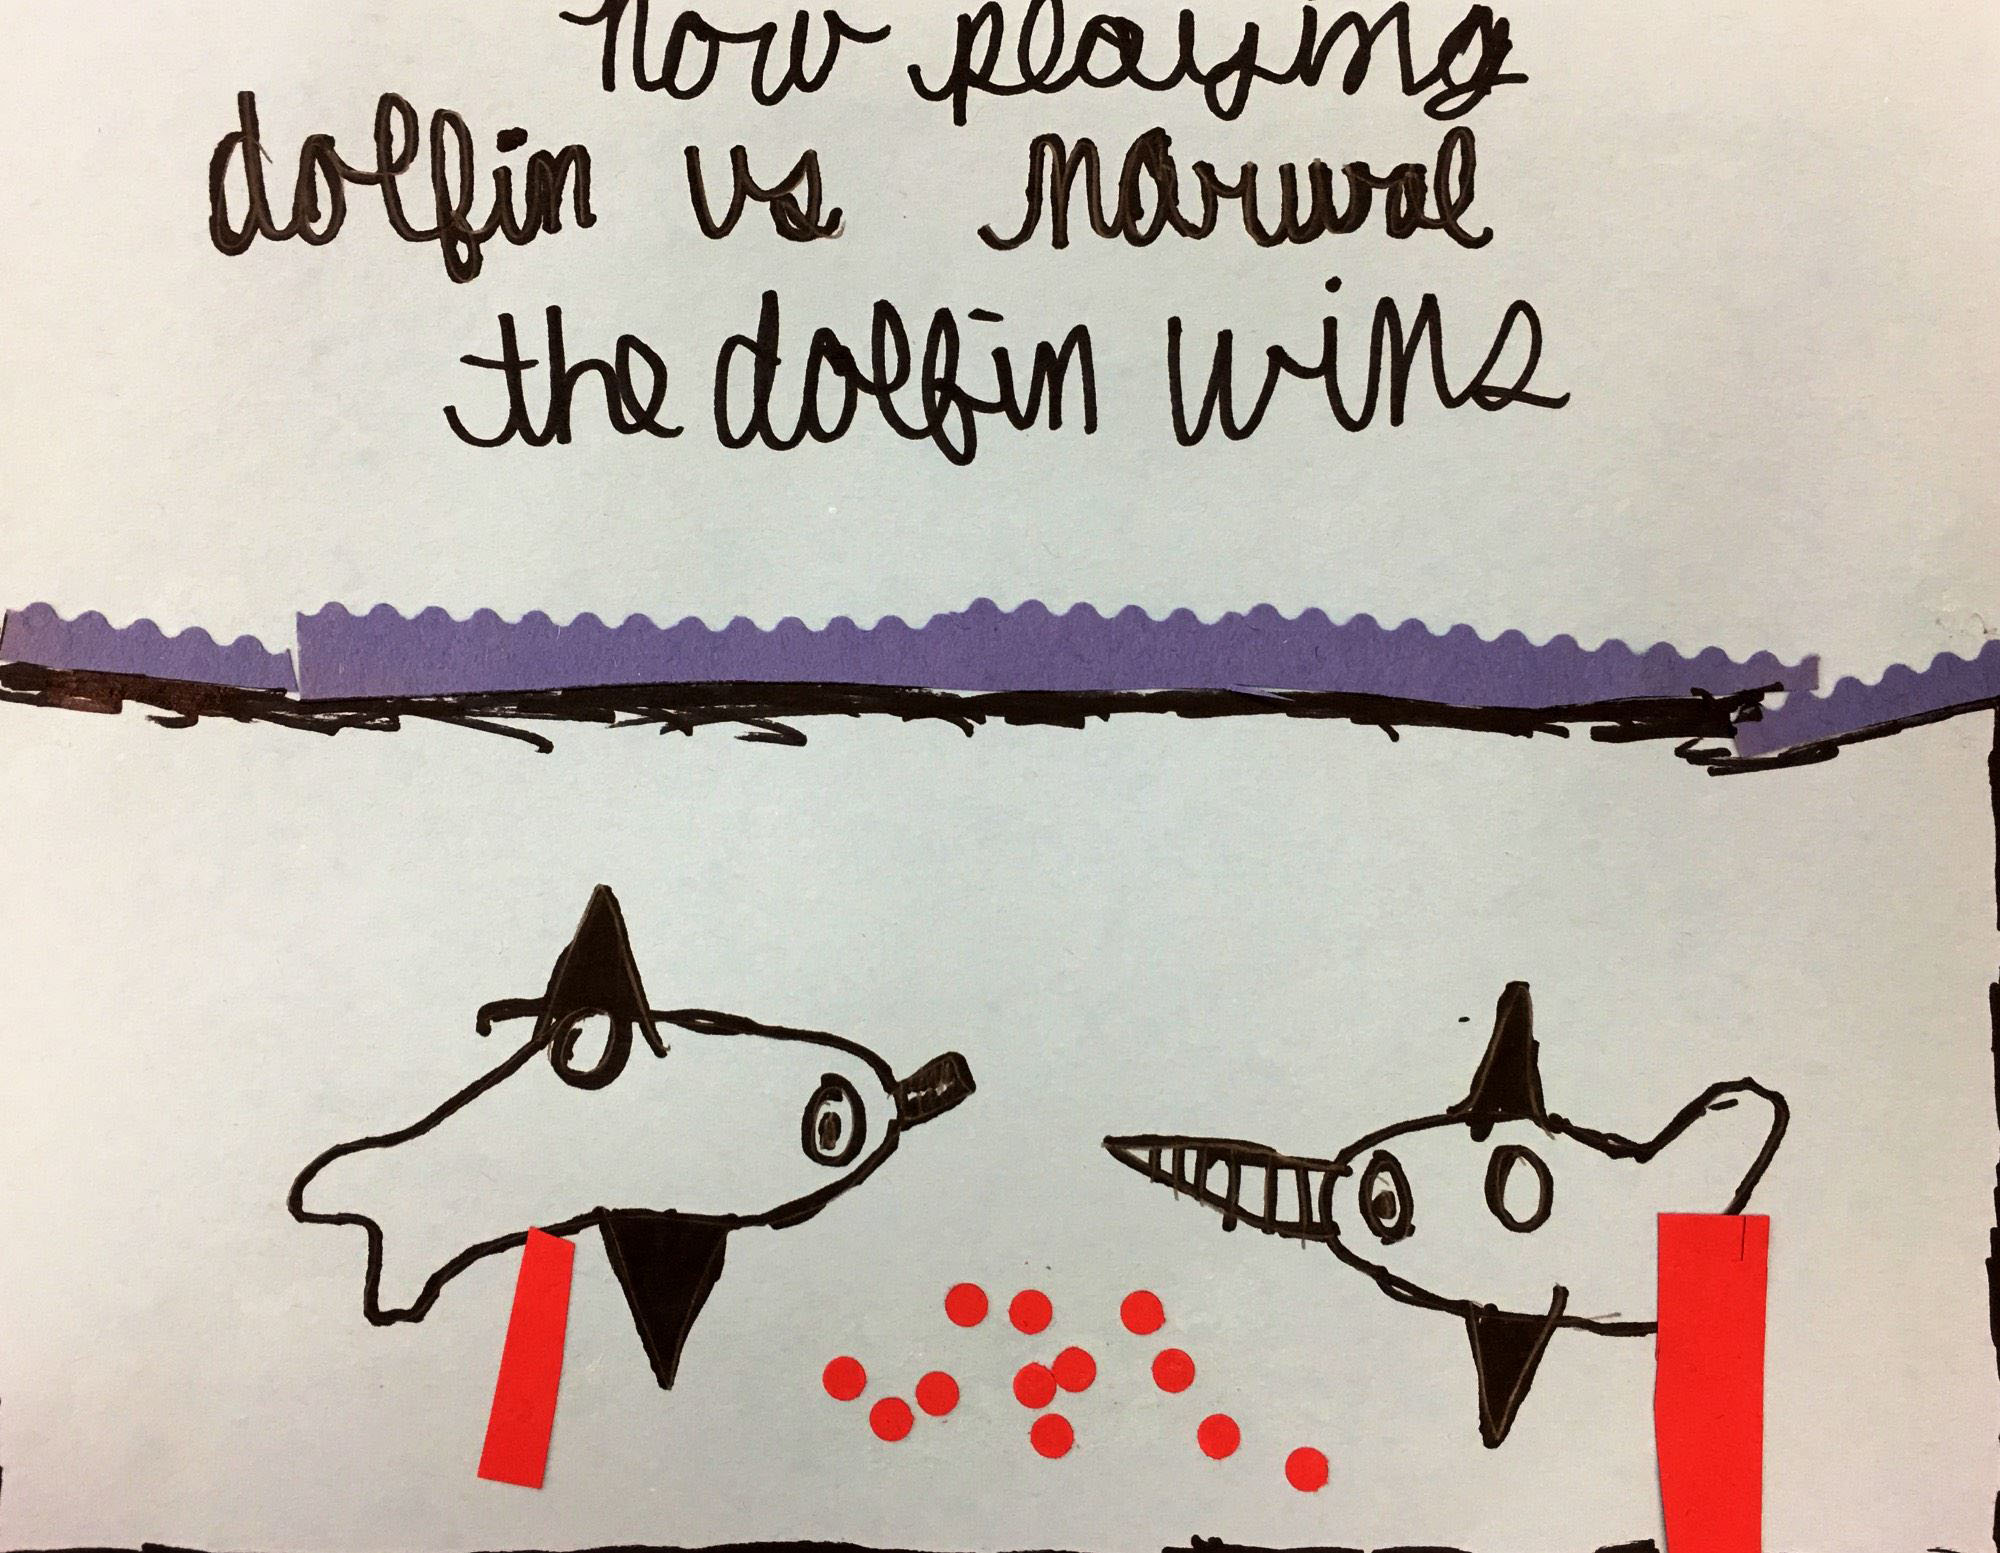 now playing
dolfin vs narwal
the dolfin wins